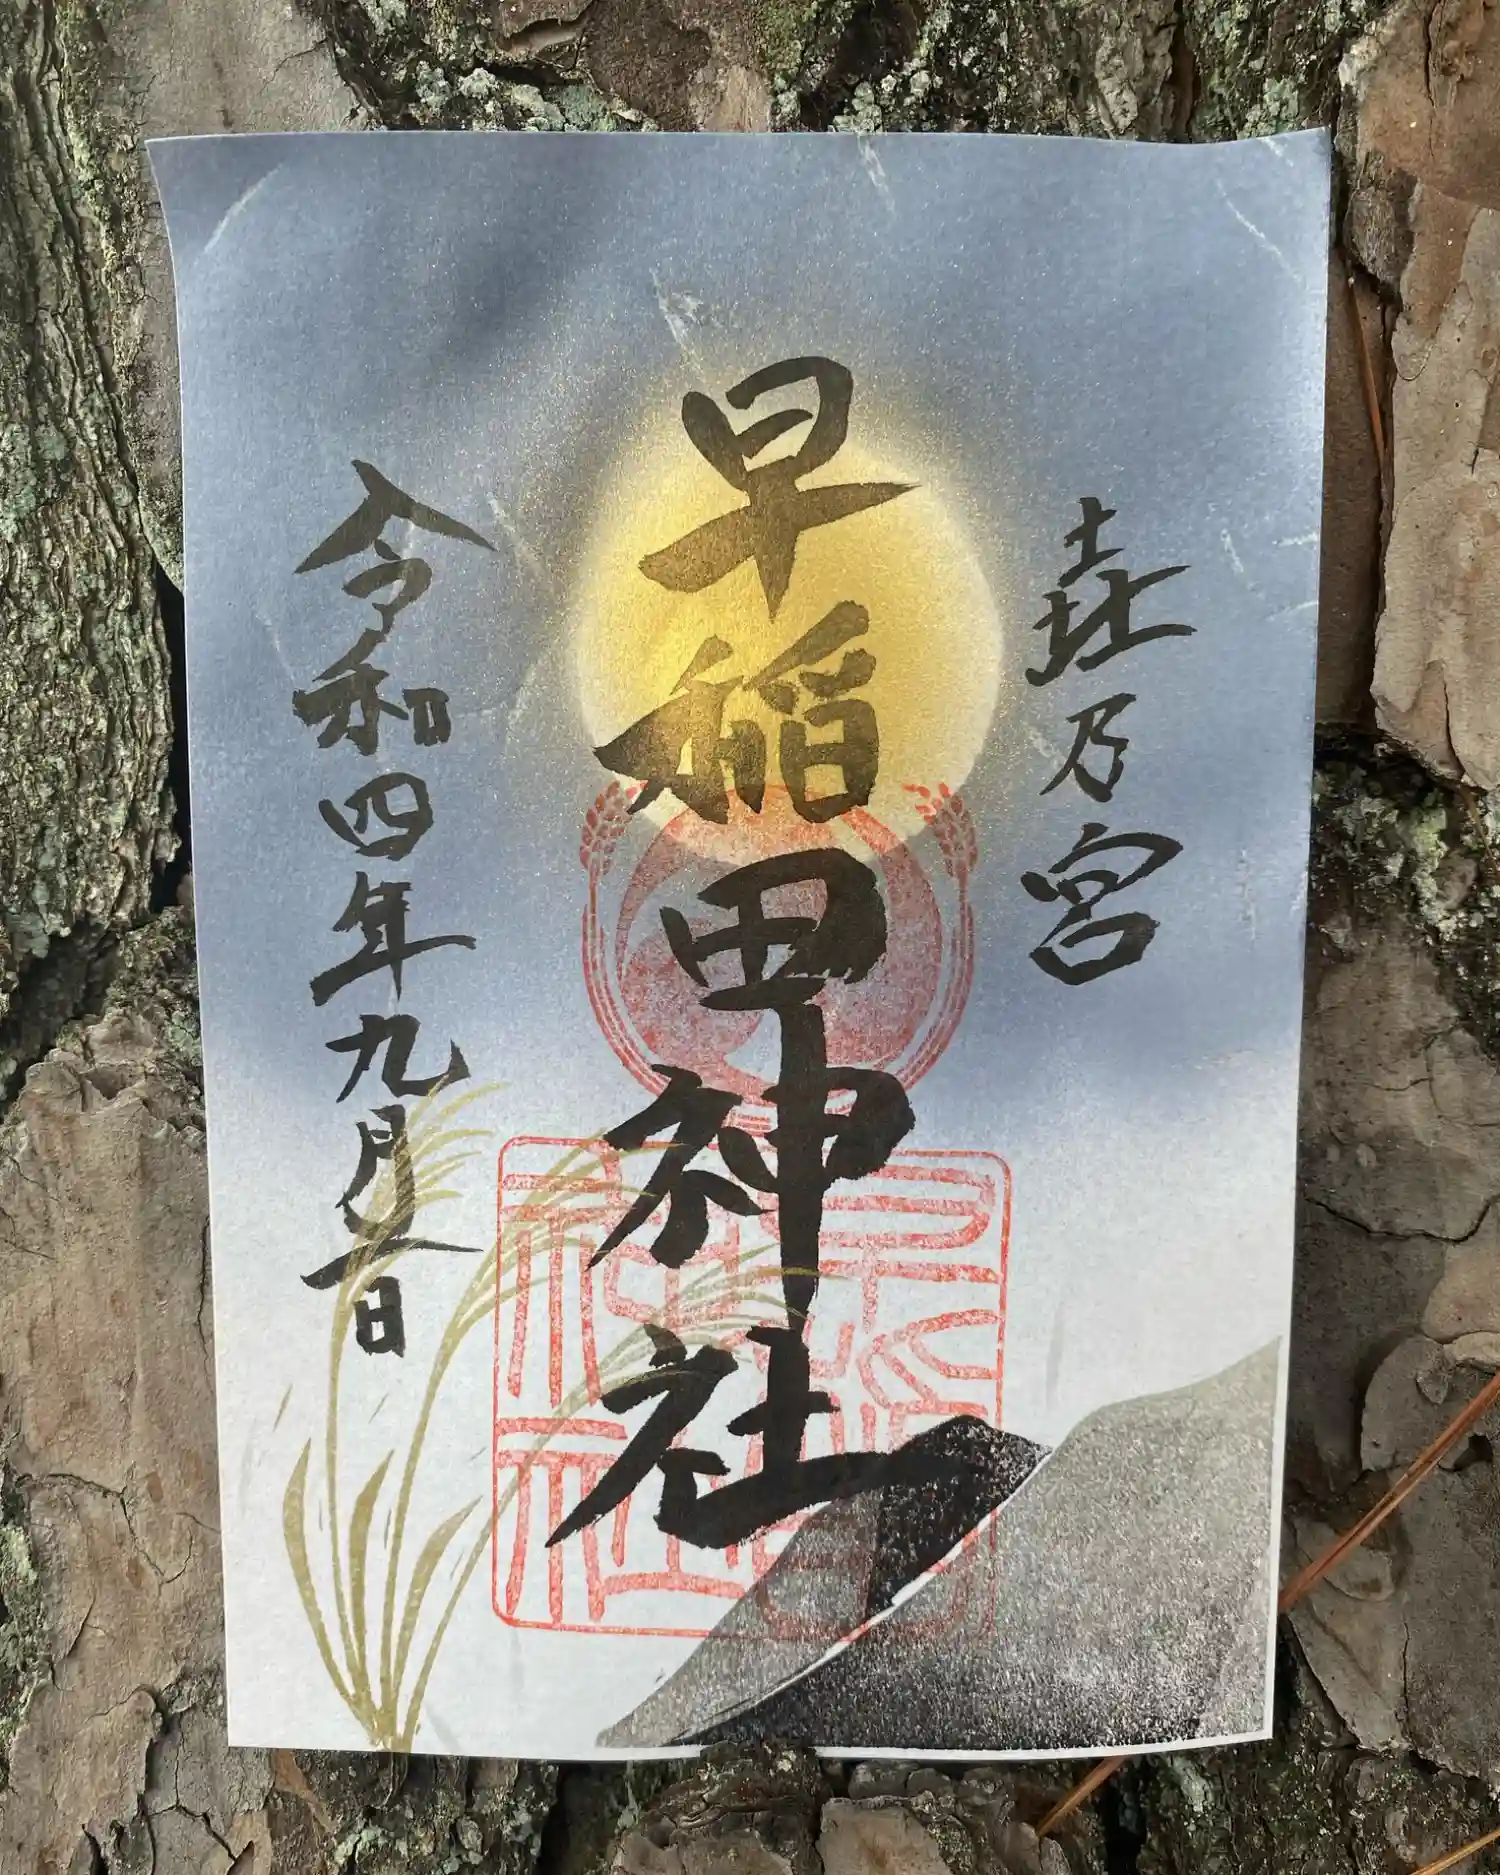 㐂乃宮
早稲田神社
令和四年九月一日
早稲田
神社